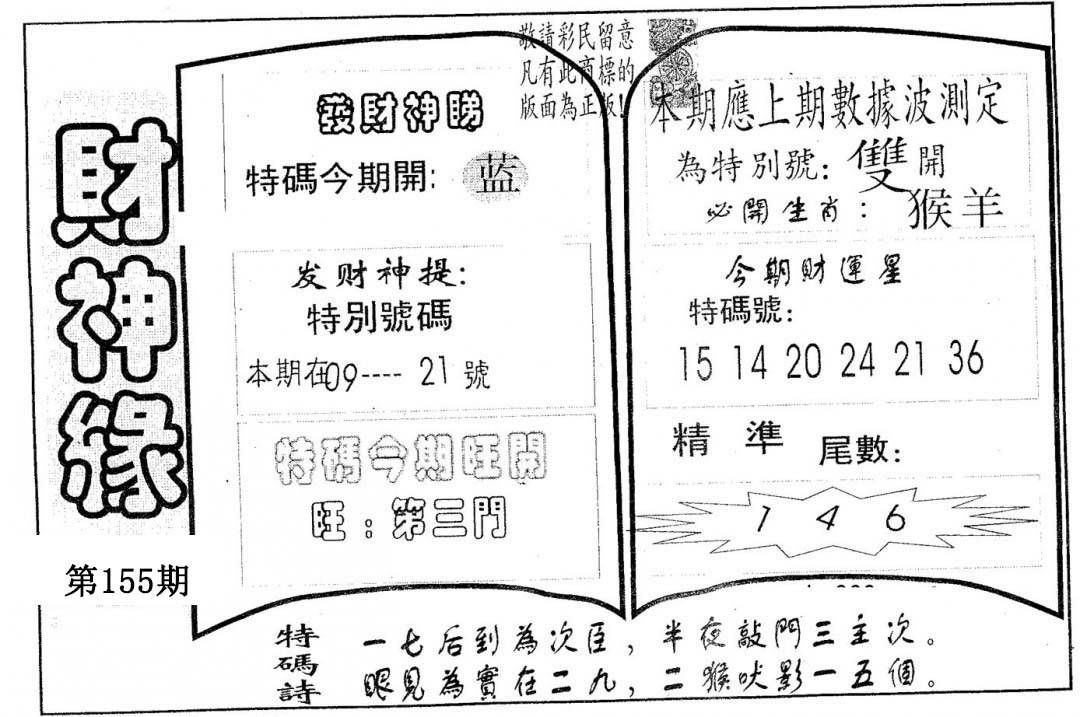 敬請彩民留意
凡有此商標的
版面為正版!
財神緣
第155期
發財神睇
特碼今期開: 蓝
发财神提:
特別號碼
本期在09---- 21 號
特碼今期旺開
旺：第三門
本期應上期數據波測定
為特別號: 雙開
必開生肖： 猴羊
今期財運星
特碼號:
15 14 20 24 21 36
精準 尾數:
1 4 6
特碼詩
一七后到為次臣，半夜敲門三主次。
眼見為實在二九，二猴吠影一五個。